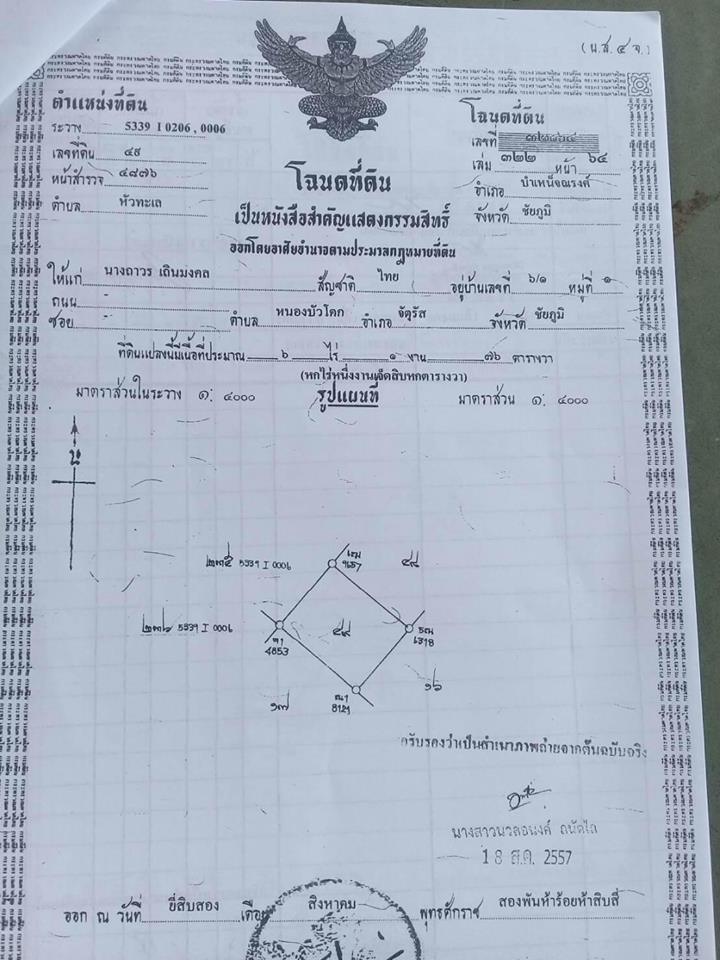 (น.ส. ๔ จ.)
ตำแหน่งที่ดิน
ระวาง 5339 I 0206 , 0006
เลขที่ดิน ๔๙
หน้าสำรวจ ๔๘๗๖
ตำบล หัวทะเล
โฉนดที่ดิน
เลขที่
เล่ม ๓๒๒ หน้า ๖๔
อำเภอ บำเหน็จณรงค์
จังหวัด ชัยภูมิ
โฉนดที่ดิน
เป็นหนังสือสำคัญแสดงกรรมสิทธิ์
ออกโดยอาศัยอำนาจตามประมวลกฎหมายที่ดิน
ให้แก่ นางถาวร เถินมงคล สัญชาติ ไทย อยู่บ้านเลขที่ ๖/๑ หมู่ที่ ๑
ถนน -
ซอย - ตำบล หนองบัวโคก อำเภอ จัตุรัส จังหวัด ชัยภูมิ
ที่ดินแปลงนี้มีเนื้อที่ประมาณ ๖ ไร่ ๑ งาน ๗๖ ตารางวา
(หกไร่หนึ่งงานเจ็ดสิบหกตารางวา)
มาตราส่วนในระวาง ๑: ๔๐๐๐ รูปแผนที่ มาตราส่วน ๑: ๔๐๐๐
น
5339 I 0006
๔๘
5339 I 0006
๔๙
4853
๑๗
๑๖
ครับรองว่าเป็นสำเนาภาพถ่ายจากต้นฉบับจริง
นางสาวนวลอนงค์
18 ส.ค. 2557
ออก ณ วันที่ ยี่สิบสอง เดือน สิงหาคม พุทธศักราช สองพันห้าร้อยห้าสิบสี่